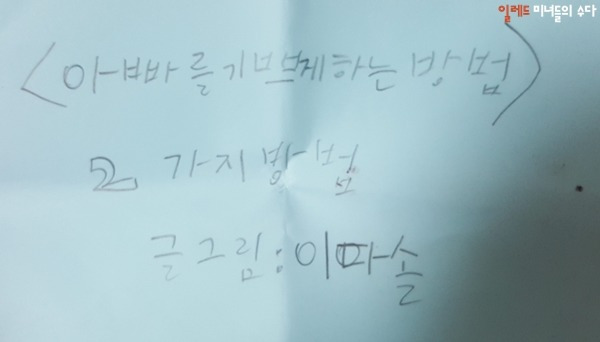 일레드 미녀들의 수다
<아빠를 기쁘게하는 방법>
2 가지 방법
글그림:이다솔